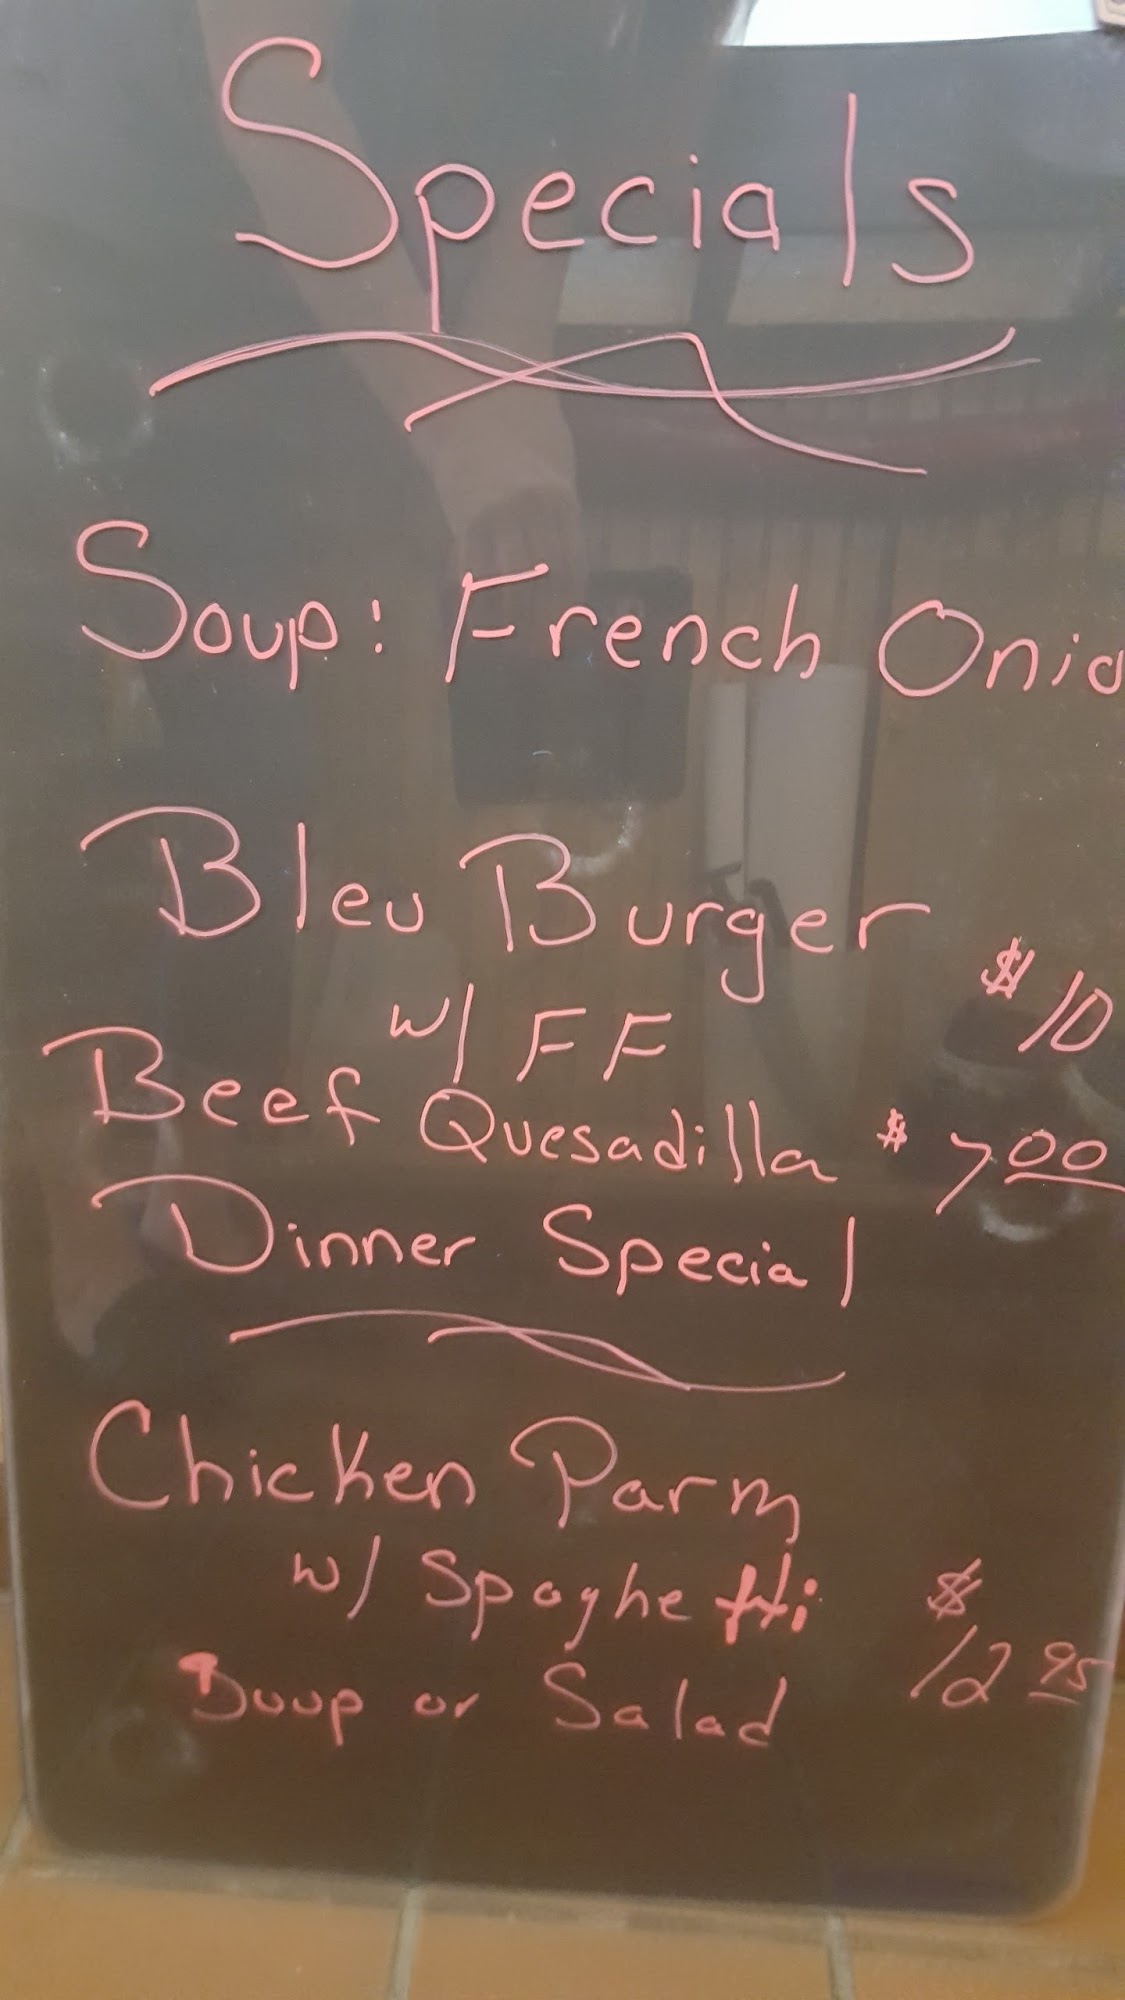 Specials
Soup: French Onio
Bleu Burger
w/ FF $10
Beef Quesadilla $700
Dinner Special
Chicken Parm
w/ Spaghetti $
Soup or Salad 12 95